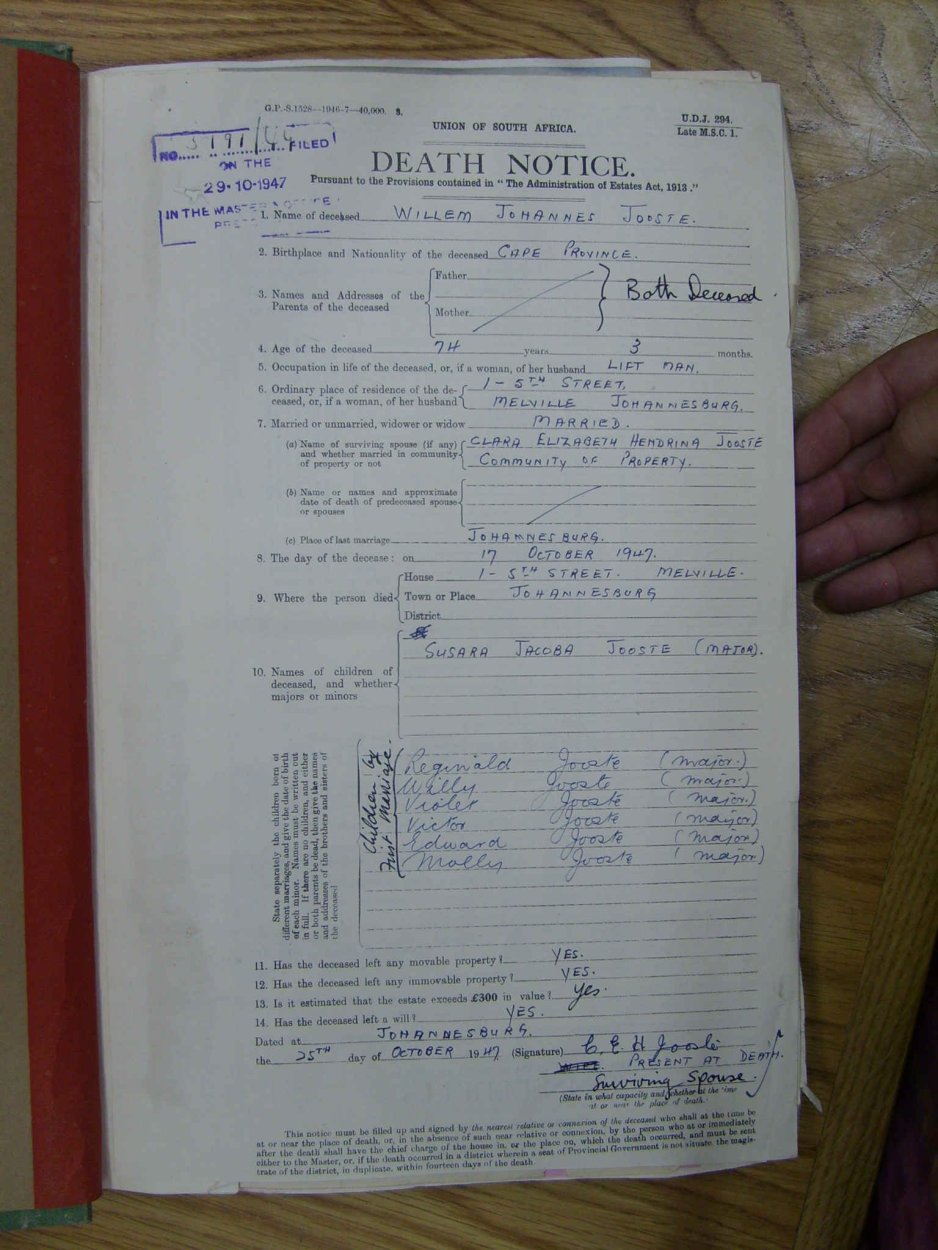 G.P.-S.1528—1946-7—40,000. S.
U.D.J. 294.
Late M.S.C. 1.
UNION OF SOUTH AFRICA.
NO. 5191/ FILED
ON THE
29·10·1947
IN THE MASTER'S OFFICE
DEATH NOTICE.
Pursuant to the Provisions contained in “ The Administration of Estates Act, 1913 .”
1. Name of deceased WILLEM JOHANNES JOOSTE.
2. Birthplace and Nationality of the deceased CAPE PROVINCE.
3. Names and Addresses of the Parents of the deceased
Father
Mother
Both Deceased.
4. Age of the deceased 74 years 3 months.
5. Occupation in life of the deceased, or, if a woman, of her husband LIFT MAN.
6. Ordinary place of residence of the de- 1 - 5TH STREET,
ceased, or, if a woman, of her husband MELVILLE JOHANNESBURG.
7. Married or unmarried, widower or widow MARRIED.
(a) Name of surviving spouse (if any) CLARA ELIZABETH HENDRINA JOOSTE
and whether married in community COMMUNITY OF PROPERTY.
of property or not
(b) Name or names and approximate
date of death of predeceased spouse
or spouses
(c) Place of last marriage JOHANNESBURG.
8. The day of the decease: on 17 OCTOBER 1947.
9. Where the person died
House 1 - 5TH STREET. MELVILLE.
Town or Place JOHANNESBURG
District
10. Names of children of
deceased, and whether
majors or minors
SUSARA JACOBA JOOSTE (MAJOR).
State separately the children born of
different marriages, and give the date of birth
of each minor. Names must be written out
in full. If there are no children, and either
or both parents be dead, then give the names
and addresses of the brothers and sisters of
the deceased
Children by
First Marriage.
Reginald Jooste (major.)
Willy Jooste (major.)
Violet Jooste (major.)
Victor Jooste (major)
Edward Jooste (major)
Molly Jooste (major)
11. Has the deceased left any movable property? YES.
12. Has the deceased left any immovable property? YES.
13. Is it estimated that the estate exceeds £300 in value? Yes.
14. Has the deceased left a will? YES.
Dated at JOHANNESBURG.
the 25TH day of OCTOBER 1947. (Signature) C. E. H Jooste
PRESENT AT DEATH.
Surviving Spouse.
(State in what capacity and whether at the time
at or near the place of death.
This notice must be filled up and signed by the nearest relative or connexion of the deceased who shall at the time be
at or near the place of death, or, in the absence of such near relative or connexion, by the person who at or immediately
after the death shall have the chief charge of the house in, or the place on, which the death occurred, and must be sent
either to the Master, or, if the death occurred in a district wherein a seat of Provincial Government is not situate, the magis-
trate of the district, in duplicate, within fourteen days of the death